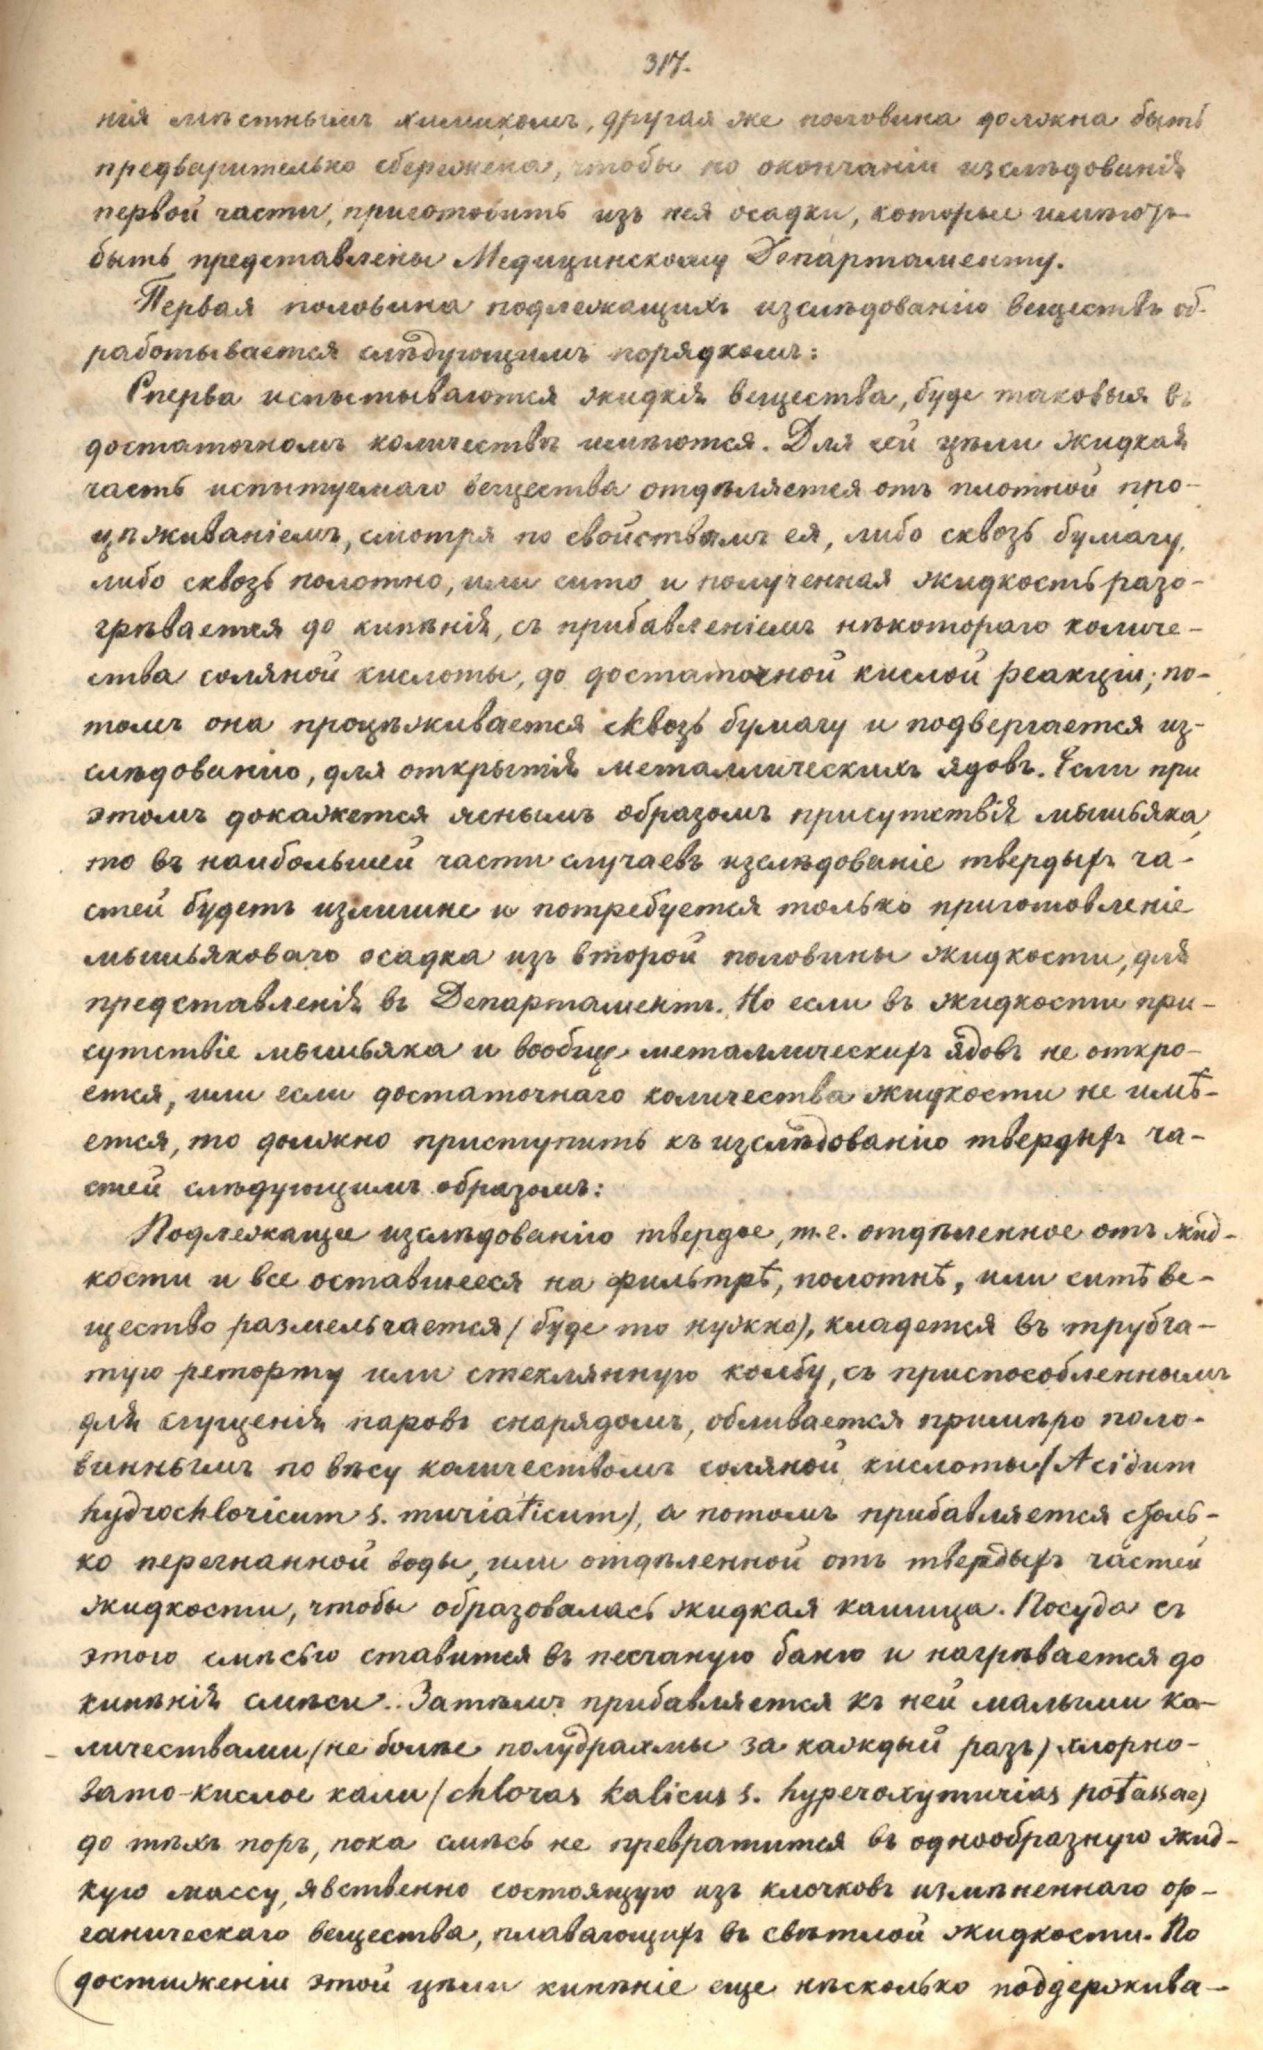 317.
нія мѣстнымъ химикомъ, другая же половина должна быть
предварительно сбережена, чтобы по окончаніи изслѣдованія
первой части, приготовить изъ нея осадки, которые имѣютъ
быть представлены Медицинскому Департаменту.
Первая половина подлежащихъ изслѣдованію веществъ об-
работывается слѣдующимъ порядкомъ:
Сперва испытываются жидкія вещества, буде таковыя въ
достаточномъ количествѣ имѣются. Для сей цѣли жидкая
часть испытуемаго вещества отдѣляется отъ плотной про-
цѣживаніемъ, смотря по свойствамъ ея, либо сквозь бумагу,
либо сквозь полотно, или сито и полученная жидкость разо-
грѣвается до кипѣнія, съ прибавленіемъ нѣкотораго количе-
ства соляной кислоты, до достаточной кислой реакціи; по-
томъ она процѣживается сквозь бумагу и подвергается из-
слѣдованію, для открытія металлическихъ ядовъ. Если при
этомъ докажется яснымъ образомъ присутствія мышьяка,
то въ наибольшей части случаевъ изслѣдованіе твердыхъ ча-
стей будетъ излишне и потребуется только приготовленіе
мышьяковаго осадка изъ второй половины жидкости, для
представленія въ Департаментъ. Но если въ жидкости при-
сутствіе мышьяка и вообще металлическихъ ядовъ не откро-
ется, или если достаточнаго количества жидкости не имѣ-
ется, то должно приступить къ изслѣдованію твердыхъ ча-
стей слѣдующимъ образомъ:
Подлежащее изслѣдованію твердое, т.е. отдѣленное отъ жид-
кости и все оставшееся на фильтрѣ, полотнѣ, или ситѣ ве-
щество размельчается (буде то нужно), кладется въ трубча-
тую реторту или стеклянную колбу, съ приспособленнымъ
для сгущенія паровъ снарядомъ, обливается примѣрно поло-
виннымъ по вѣсу количествомъ соляной кислоты (Acidum
hydrochloricum s. muriaticum), а потомъ прибавляется столь-
ко перегнанной воды, или отдѣленной отъ твердыхъ частей
жидкости, чтобы образовалась жидкая кашица. Посуда съ
этою смѣсью ставится въ песчаную баню и нагрѣвается до
кипѣнія смѣси. Затѣмъ прибавляется къ ней малыми ко-
личествами (не болѣе полудрахмы за каждый разъ) хлорно-
вато-кислое кали (chloras kalicus s. hyperoxymurias potassae)
до тѣхъ поръ, пока смѣсь не превратится въ однообразную жид-
кую массу, явственно состоящую изъ клочковъ измѣненнаго ор-
ганическаго вещества, плавающихъ въ свѣтлой жидкости. По
достиженіи этой цѣли кипѣніе еще нѣсколько поддержива-